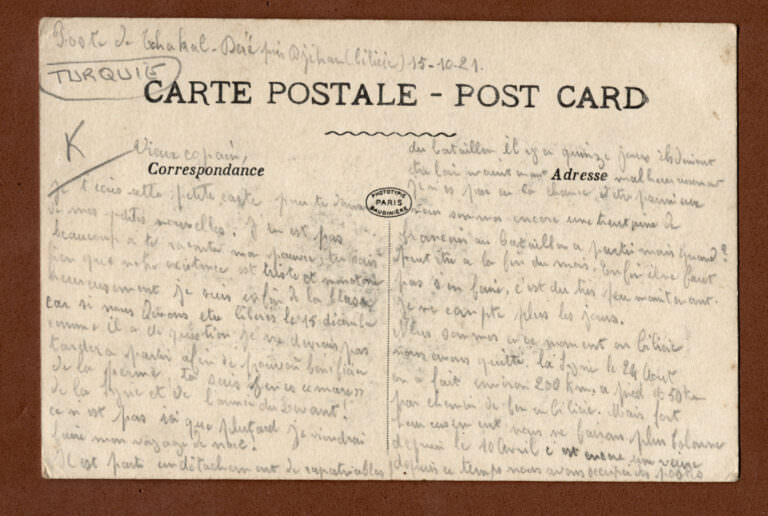 Poste de Tchakal-Déré près Djihan (Cilicie) 15-10-21.
TURQUIE
CARTE POSTALE - POST CARD
K
Vieux copain,
Correspondance
Je t'écris cette petite carte pour te donner
de mes petites nouvelles. Je n'ai pas
beaucoup à te raconter mon pauvre, tu sais
bien que notre existence est triste et monotone
heureusement je suis en fin de la classe
car si nous devons etre libérés le 15 décembre
comme il a de question je ne devrais pas
tarder a partir afin de pouvoir bénéficier
de la perme. tu sais
de la ligne et de l'armée du Levant!
ce n'est pas ici que plutard je viendrai
faire mon voyage de noce!
Il est parti un détachement de rapatriables
PHOTOTYPIE
PARIS
BAUDINIÈRE
du bataillon il y a quinze jours ils doivent
Adresse
etre loin maintenant malheureusement
je n'ai pas eu la chance d'etre parmi eux
nous sommes encore une trentaine de
français au bataillon a partir mais quand?
peut être a la fin du mois. Enfin il ne faut
pas s'en faire, c'est du très peu maintenant.
je ne compte plus les jours.
Nous sommes en ce moment en Cilicie
nous avons quitté la ligne le 24 Aout
on a fait environ 200 km, a pied et 50 km
par chemin de fer en Cilicie. Mais fort
heureusement nous ne faisons plus colonne
depuis le 10 Avril c'est encore une veine
depuis ce temps nous avons occupé des postes